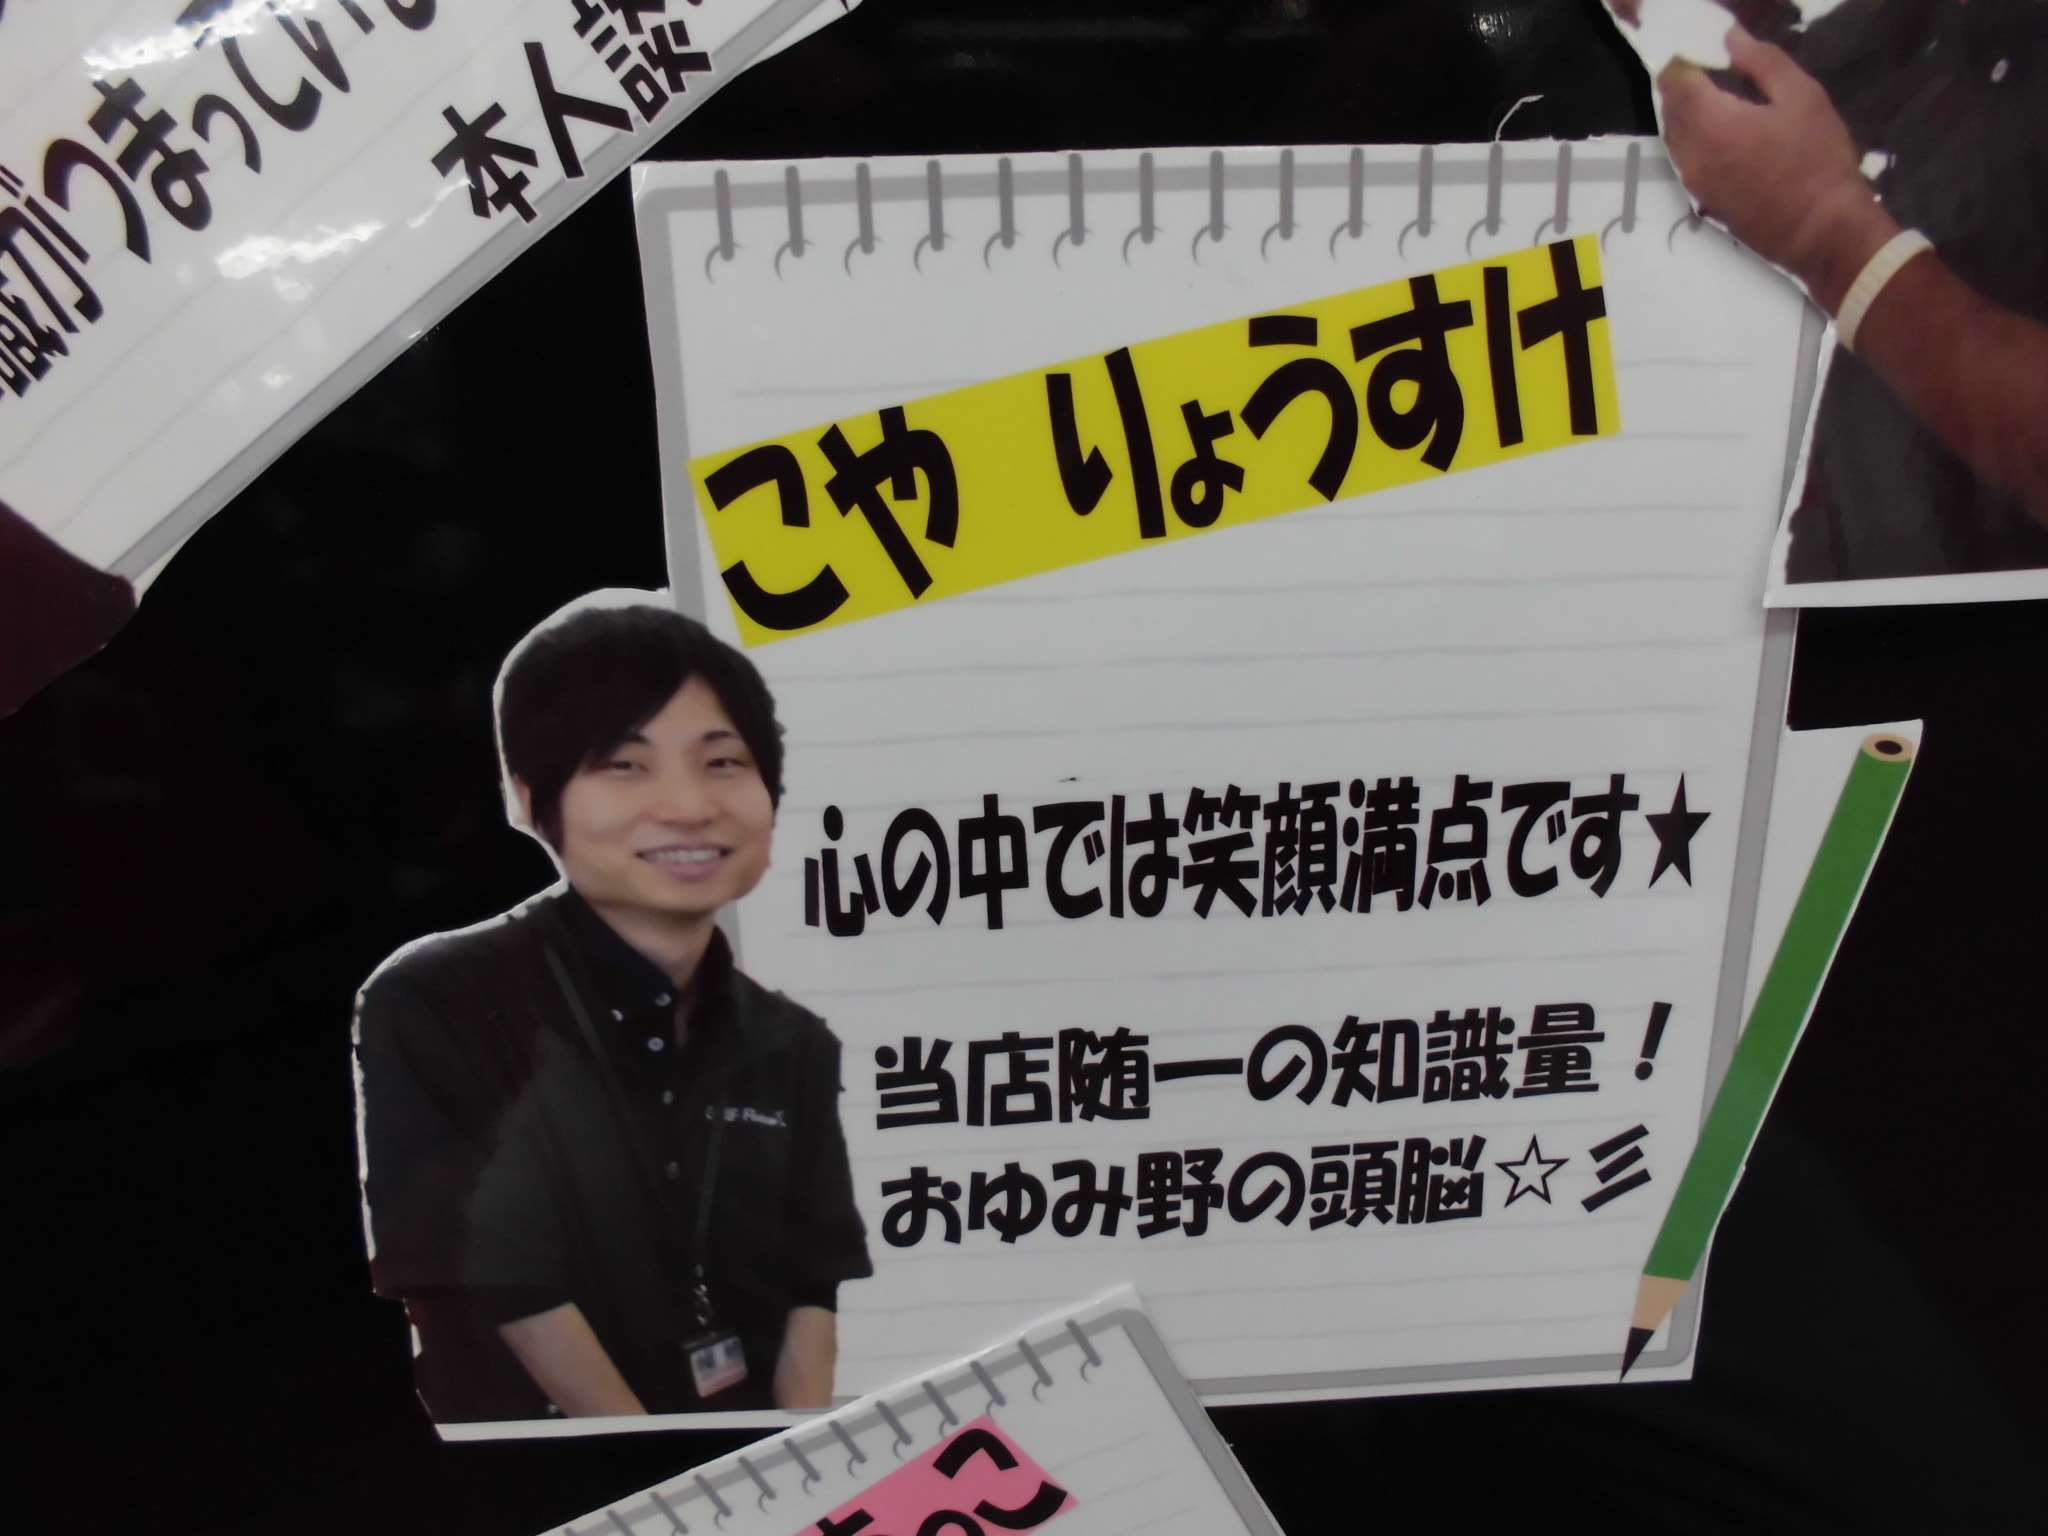 がつまっている
本人談
こや りょうすけ
心の中では笑顔満点です★
当店随一の知識量！
おゆみ野の頭脳☆彡
っこ